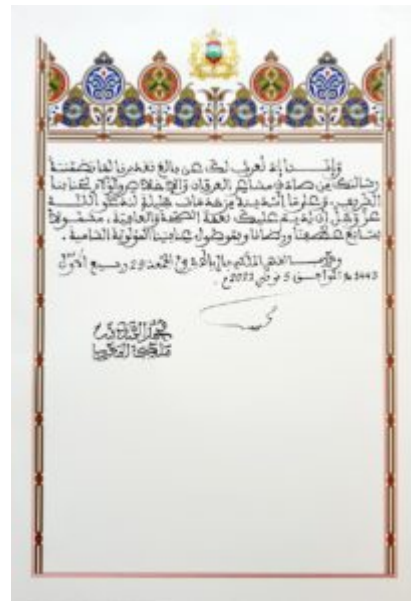 وإننا إذ نعرب لك عن بالغ تقديرنا لما تضمنته
رسالتك من صادق مشاعر العرفان والإخلاص والولاء لجنابنا
الشريف، وعلى ما أسديته من خدمات جليلة، ندعو الله
عز وجل أن يديم عليك نعمة الصحة والعافية، مشمولا
بسابغ عطفنا ورضانا وبموصول عنايتنا المولوية السامية.
وحرر بالقصر الملكي بالرباط في الجمعة 29 ربيع الأول
1443 هـ الموافق 5 نوفمبر 2021م.
محمد السادس
ملك المغرب